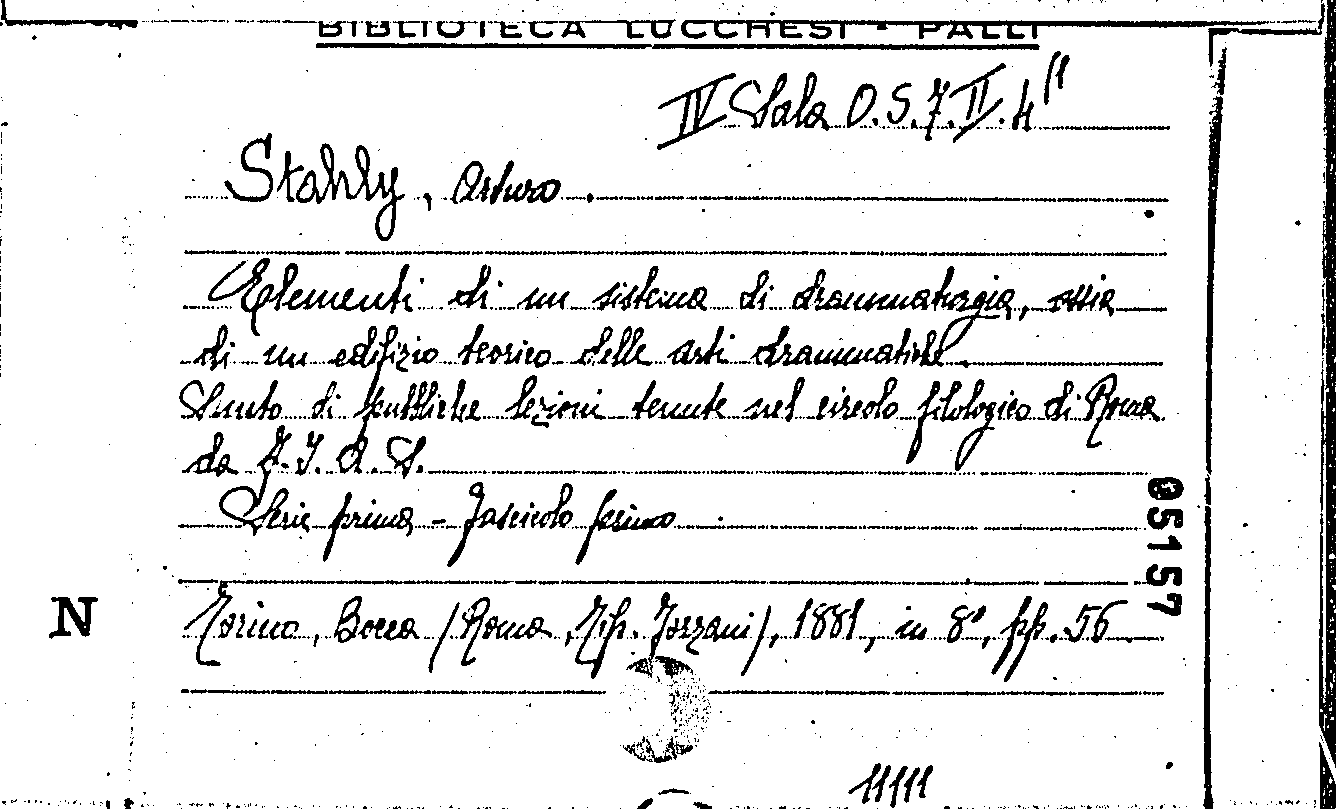 BIBLIOTECA LUCCHESI - PALLI
IV Sala O.S.7.II.4"
Stahly, Arturo.
Elementi di un sistema di drammaturgia, ossia
di un edifizio teorico delle arti drammatiche.
Sunto di pubbliche lezioni tenute nel circolo filologico di Roma
da F.I.A.S.
Serie prima - Fascicolo primo
05157
N
Torino, Bocca (Roma, Tip. Forzani), 1881, in 8°, pp. 56
11111